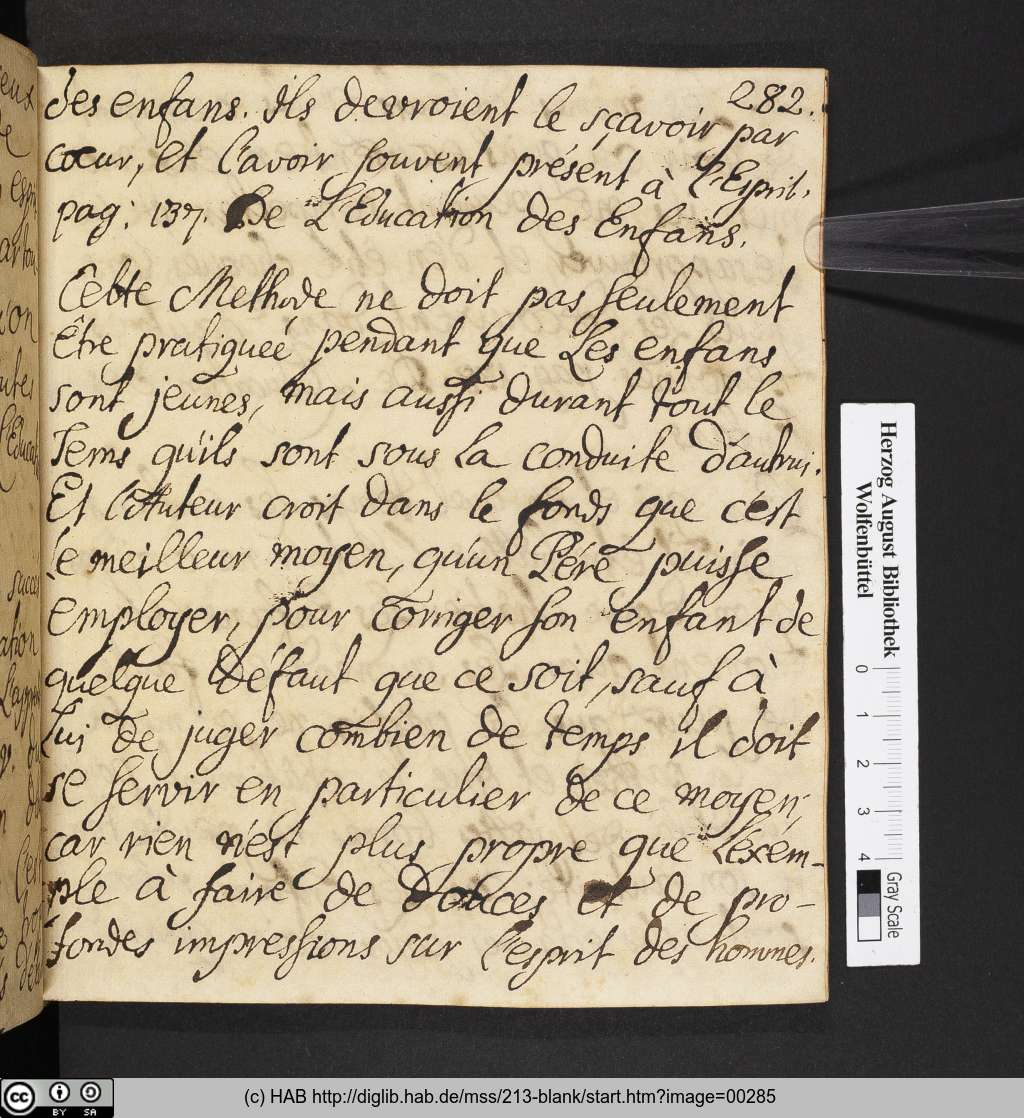 282.
des enfans. Ils devroient le sçavoir par
cœur, et l'avoir souvent présent à l'Esprit.
pag: 137. De L'Education des Enfans.
Cette Methode ne doit pas seulement
Être pratiqueé pendant que Les enfans
sont jeunes, mais aussi durant tout le
Tems qu'ils sont sous La conduite d'autrui.
Et l'Auteur croit dans le fonds que c'est
le meilleur moyen, qu'un Pére puisse
employer, pour corriger son enfant de
quelque Défaut que ce soit, sauf à
Lui de juger combien de temps il doit
se servir en particulier de ce moyen;
car rien n'est plus propre que L'exém-
ple à faire de douces et de pro-
fondes impressions sur l'esprit des hommes.
Herzog August Bibliothek
Wolfenbüttel
0 1 2 3 4
Gray Scale
(c) HAB http://diglib.hab.de/mss/213-blank/start.htm?image=00285
cc BY SA